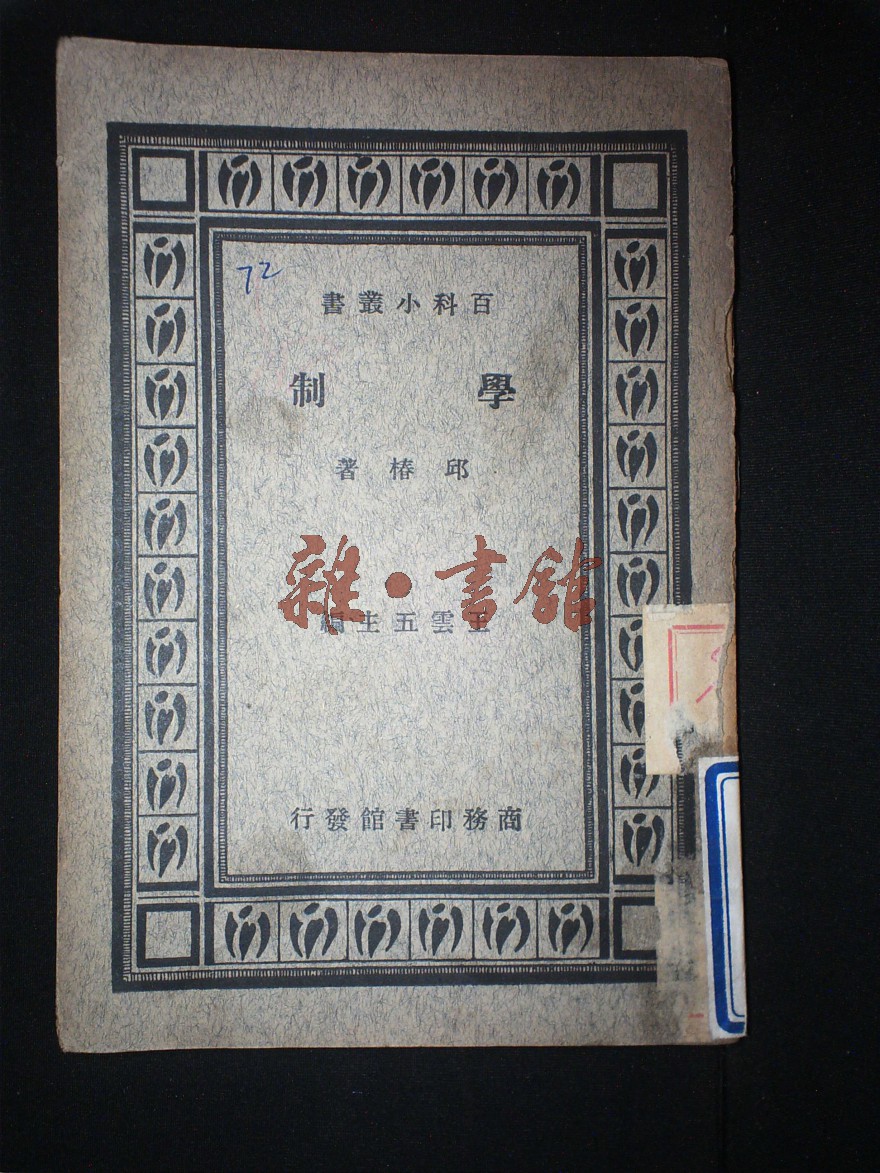 72
百科小叢書
學制
邱椿著
雜·書館
王雲五主編
商務印書館發行